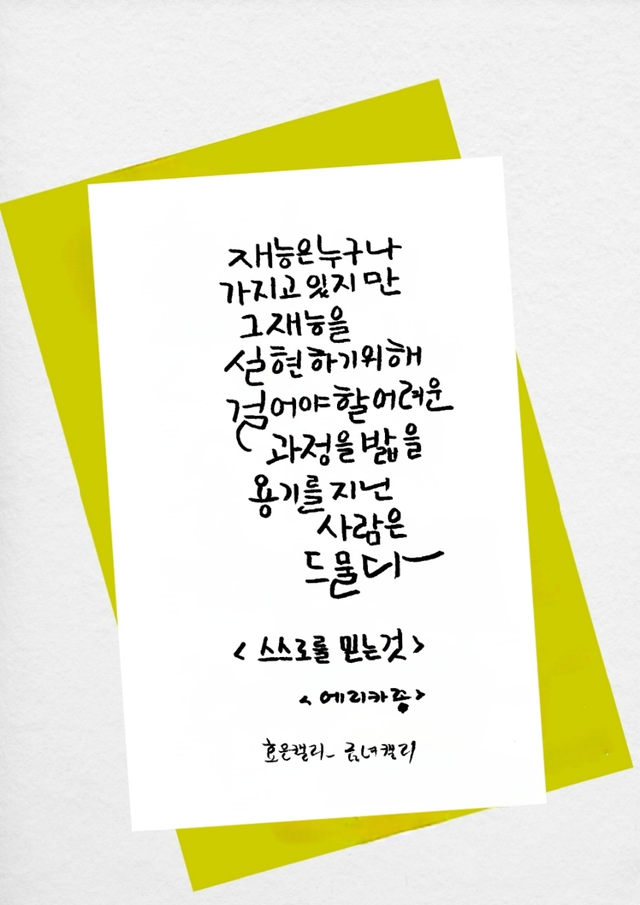 재능은 누구나
가지고 있지만
그 재능을
실현하기위해
걸어야 할 어려운
과정을 밟을
용기를 지닌
사람은
드물다
<스스로를 믿는것>
<에리카종>
효온캘리_ 금녀캘리